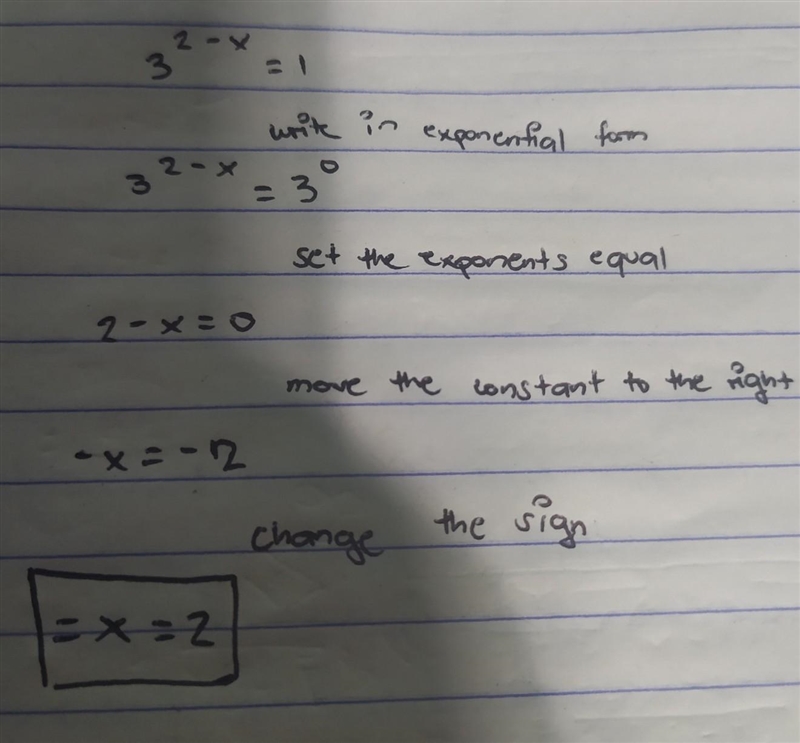 3^{2-x} = 1
write in exponential form
3^{2-x} = 3^0
set the exponents equal
2 - x = 0
move the constant to the right
-x = -2
change the sign
= x = 2